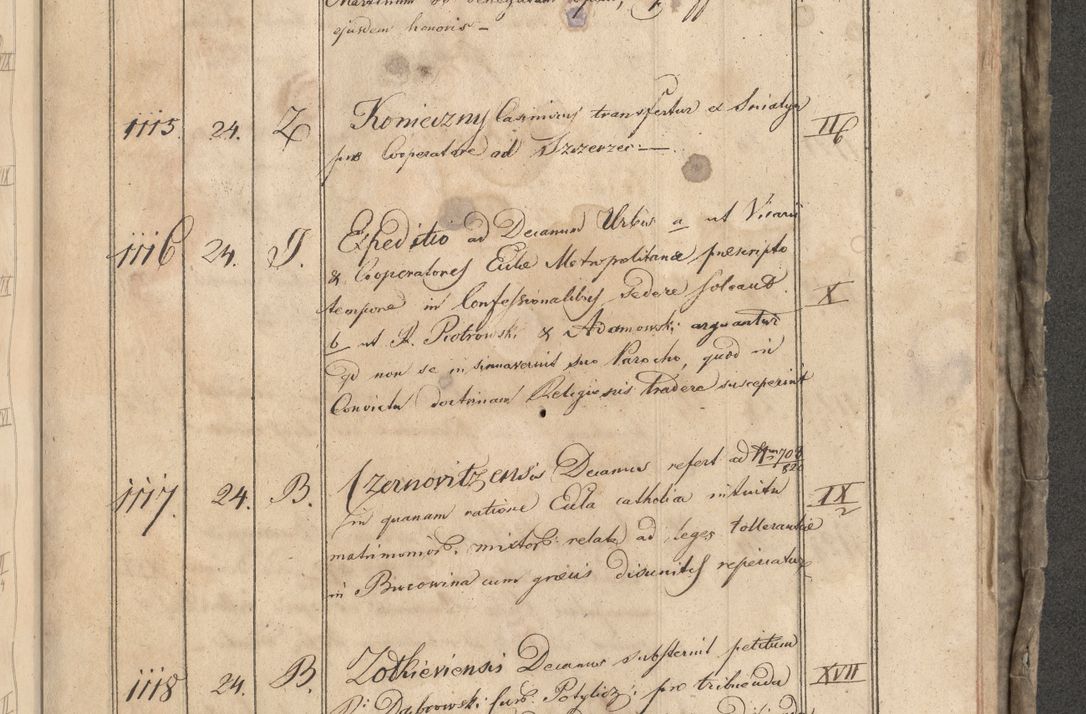 ejusdem honoris –
1115. 24. Z Konieczny Casimirus transfertur ex Sniatyn II/6
pro Cooperatore ad Szczerzec —
1116 24. J. Expeditio ad Decanum Urbis a ut Vicarii
& Cooperatores Eccle Metropolitanæ præscripto
tempore in Confessionalibus sedere soleant. X
b ut P. Piotrowski & Adamowski arguantur
qd non se insinuaverint suo Parocho, quod in
Convictu doctrinam Religionis tradere susceperint
1117. 24. B. Czernovitzensis Decanus refert ad Nrum 703/820
in quanam ratione Eccla catholica intuitu IX/2
matrimonior. mixtor. relate ad leges tollerantiæ
in Bucowina cum græcis disunitis reperiatur
1118 24. B. Zolkieviensis Decanus substernit petitum XVII
P. Dabrowski pro tribuenda